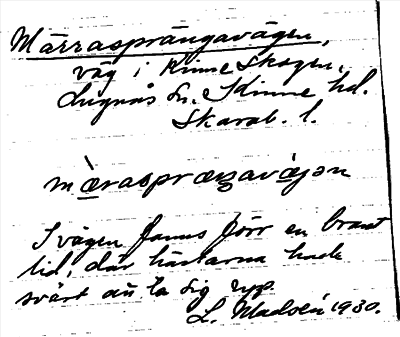 Märrasprängavägen,
väg i Kinne Skogen,
Lugnås sn. Kinne hd.
Skarab. l.
mæ̀raspræŋavæ̀gən
I vägen fanns förr en brant
lid, där hästarna hade
svårt att ta sig upp.
L. Madsén 1930.